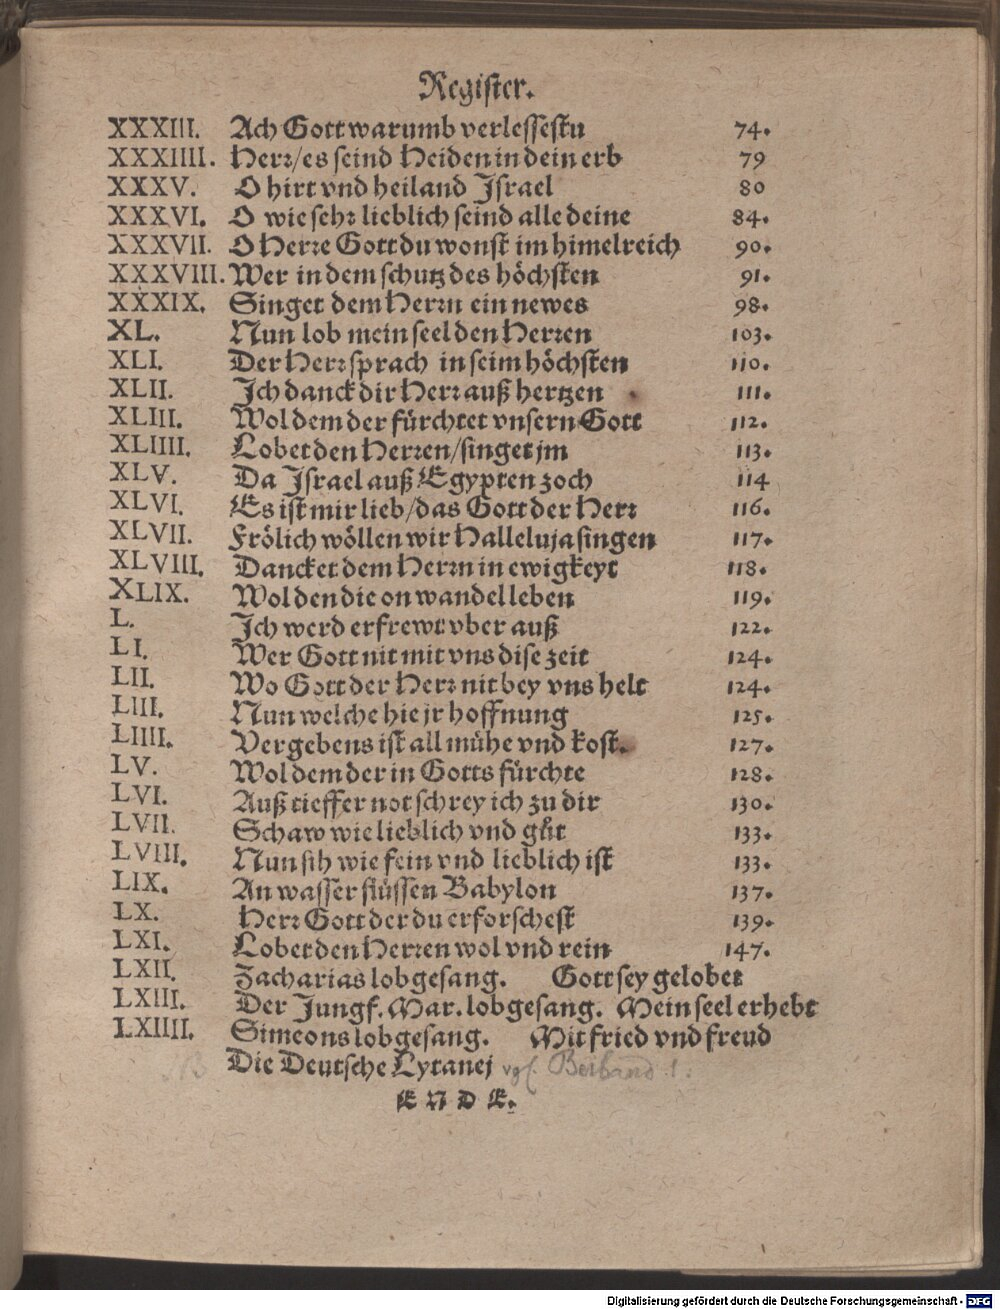 Register.
XXXIII. Ach Gott warumb verlessestu 74.
XXXIIII. Herr/es seind Heiden in dein erb 79
XXXV. O hirt vnd heiland Israel 80
XXXVI. O wie sehr lieblich seind alle deine 84.
XXXVII. O Herre Gott du wonst im himelreich 90.
XXXVIII. Wer in dem schutz des höchsten 91.
XXXIX. Singet dem Herrn ein newes 98.
XL. Nun lob mein seel den Herren 103.
XLI. Der Herr sprach in seim höchsten 110.
XLII. Ich danck dir Herr auß hertzen 111.
XLIII. Wol dem der fürchtet vnsern Gott 112.
XLIIII. Lobet den Herren/singet jm 113.
XLV. Da Israel auß Egypten zoch 114
XLVI. Es ist mir lieb/das Gott der Herr 116.
XLVII. Frölich wöllen wir Halleluja singen 117.
XLVIII. Dancket dem Herrn in ewigkeyt 118.
XLIX. Wol den die on wandel leben 119.
L. Ich werd erfrewt vber auß 122.
LI. Wer Gott nit mit vns dise zeit 124.
LII. Wo Gott der Herr nit bey vns helt 124.
LIII. Nun welche hie jr hoffnung 125.
LIIII. Vergebens ist all mühe vnd kost. 127.
LV. Wol dem der in Gotts fürchte 128.
LVI. Auß tieffer not schrey ich zu dir 130.
LVII. Schaw wie lieblich vnd gůt 133.
LVIII. Nun sih wie fein vnd lieblich ist 133.
LIX. An wasser flüssen Babylon 137.
LX. Herr Gott der du erforschest 139.
LXI. Lobet den Herren wol vnd rein 147.
LXII. Zacharias lobgesang. Gott sey gelobet
LXIII. Der Jungf. Mar. lobgesang. Mein seel erhebt
LXIIII. Simeons lobgesang. Mit fried vnd freud
Die Deutsche Lytanej vgl.
ENDE.
Digitalisierung gefördert durch die Deutsche Forschungsgemeinschaft - DFG